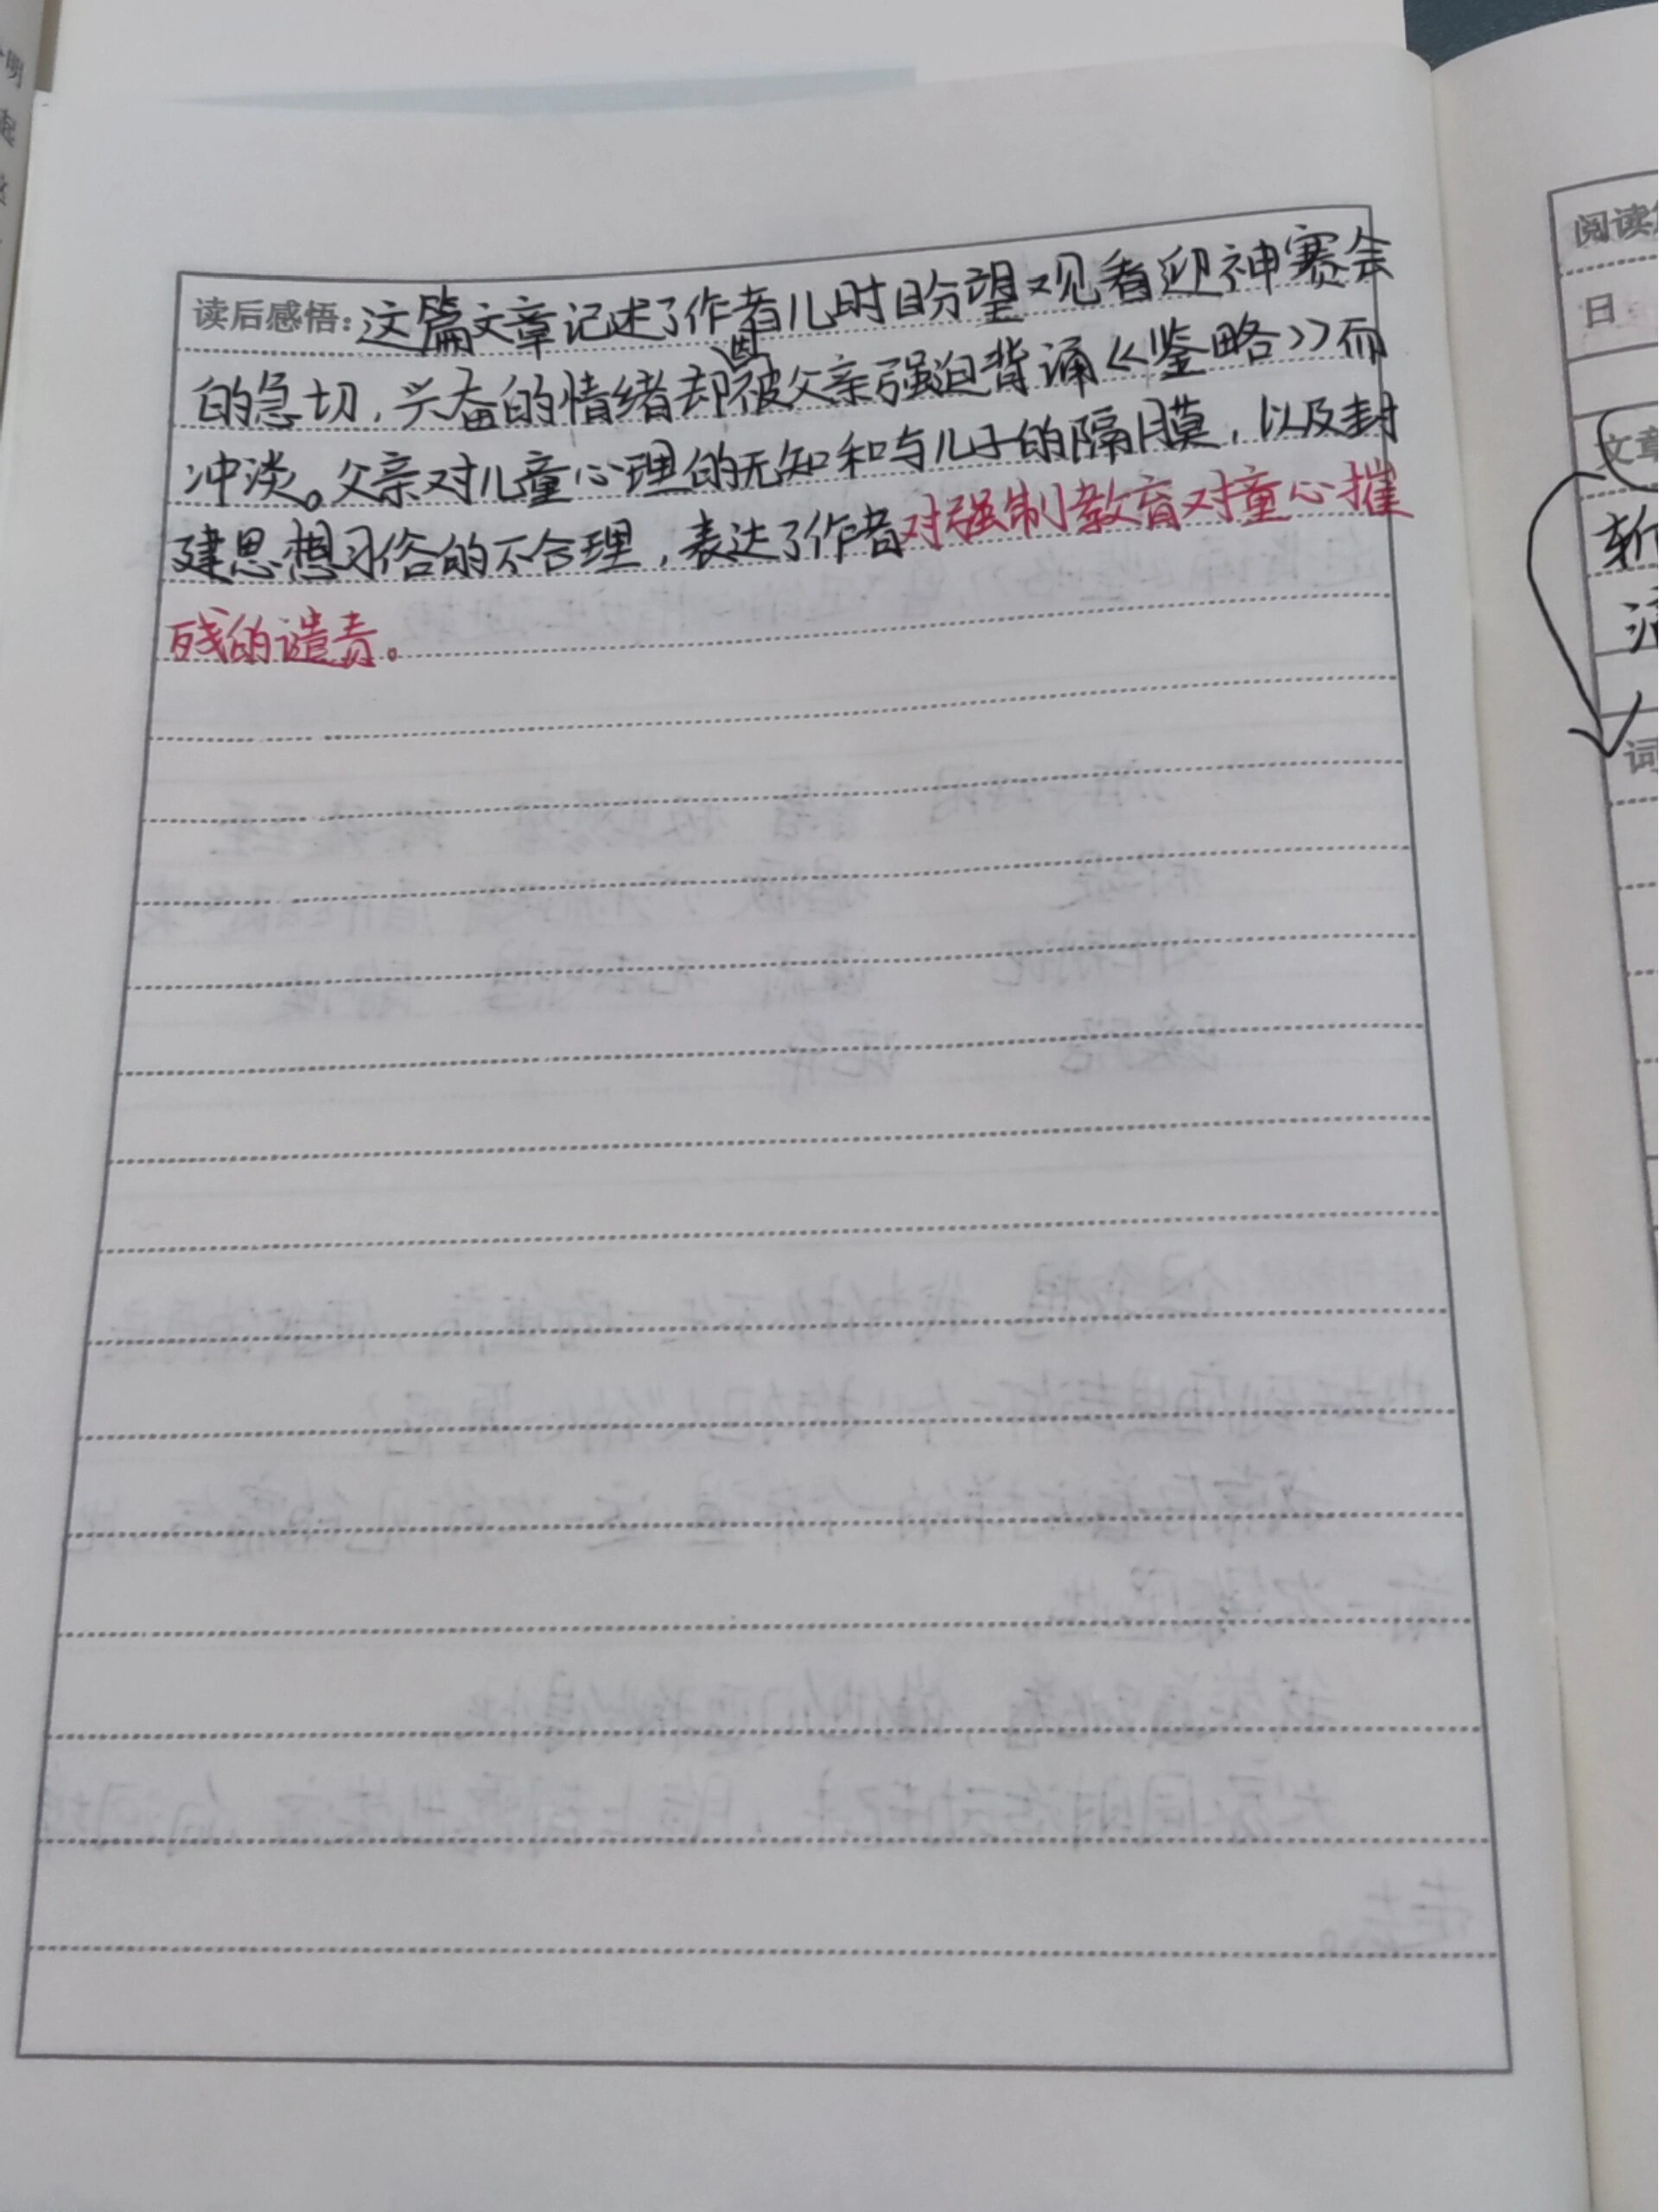 读后感悟：这篇文章记述了作者儿时盼望观看迎神赛会
的急切，兴奋的情绪却被父亲强迫背诵《鉴略》而
冲淡。父亲对儿童心理的无知和与儿子的隔膜，以及封
建思想习俗的不合理，表达了作者对强制教育对童心摧
残的谴责。
阅读
日
文章
词